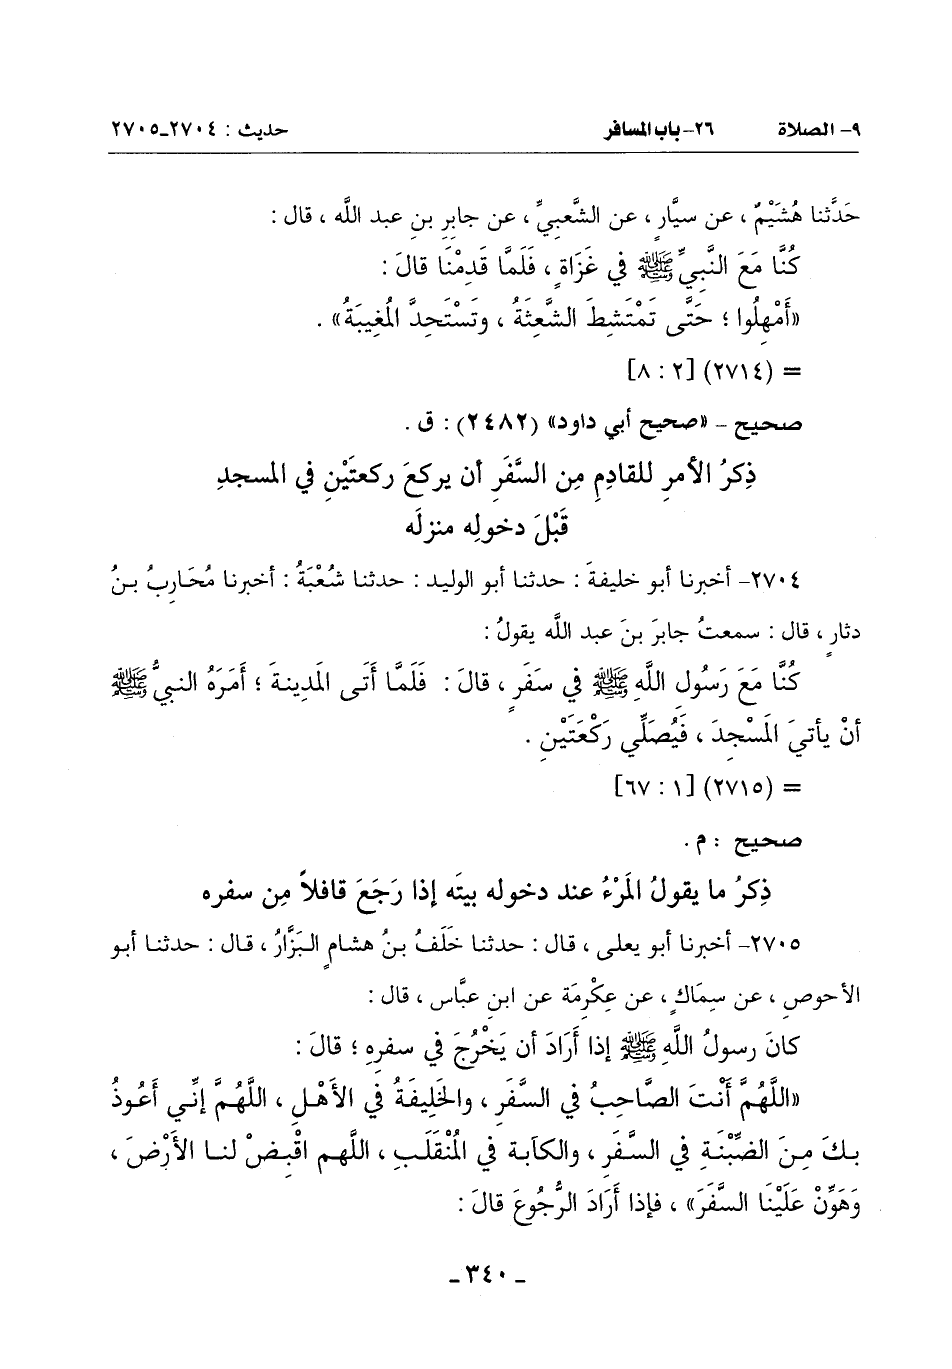 ٩- الصلاة ٢٦-باب المسافر حديث : ٢٧٠٤-٢٧٠٥
حَدَّثنا هُشَيْمٌ ، عن سيَّارٍ ، عن الشَّعبيِّ ، عن جابرِ بنِ عبد اللَّه ، قال :
كُنَّا مَعَ النَّبيِّ ﷺ في غَزَاةٍ ، فَلَمَّا قَدِمْنَا قالَ :
«أَمْهِلُوا ؛ حَتَّى تَمْتَشِطَ الشَّعثَةُ ، وتَسْتَحِدَّ المُغِيبَةُ» .
= (٢٧١٤) [٢ : ٨]
صحيح - «صحيح أبي داود» (٢٤٨٢) : ق .
ذِكرُ الأمرِ للقادِمِ مِن السَّفَرِ أن يركعَ ركعتَيْنِ في المسجدِ
قَبْلَ دخولِه منزلَه
٢٧٠٤- أخبرنا أبو خليفةَ : حدثنا أبو الوليد : حدثنا شُعْبَةُ : أخبرنا مُحَارِبُ بنُ
دثارٍ ، قال : سمعتُ جابرَ بنَ عبد اللَّه يقولُ :
كُنَّا مَعَ رَسُولِ اللَّهِ ﷺ في سفَرٍ ، قالَ : فَلَمَّا أَتَى المَدِينةَ ؛ أَمَرَهُ النبيُّ ﷺ
أنْ يأتيَ المَسْجِدَ ، فَيُصَلِّي رَكْعَتَيْنِ .
= (٢٧١٥) [١ : ٦٧]
صحيح : م .
ذِكرُ ما يقولُ المَرْءُ عند دخولِه بيتَه إذا رَجَعَ قافلاً مِن سفره
٢٧٠٥- أخبرنا أبو يعلى ، قال : حدثنا خَلَفُ بنُ هشامٍ البَزَّارُ ، قال : حدثنا أبو
الأحوصِ ، عن سِمَاكٍ ، عن عِكْرِمَة عن ابنِ عبَّاس ، قال :
كانَ رسولُ اللَّهِ ﷺ إذا أَرَادَ أن يَخْرُجَ في سفرِهِ ؛ قالَ :
«اللَّهُمَّ أَنْتَ الصَّاحِبُ في السَّفَرِ ، والخَلِيفَةُ في الأَهْلِ ، اللَّهُمَّ إنِّي أَعُوذُ
بكَ مِنَ الضِّبْنَةِ في السَّفَرِ ، والكآبَة في المُنْقَلَبِ ، اللَّهم اقْبِضْ لنا الأَرْضَ ،
وَهَوِّنْ عَلَيْنَا السَّفَرَ» ، فإذا أَرَادَ الرُّجُوعَ قالَ :
- ٣٤٠ -